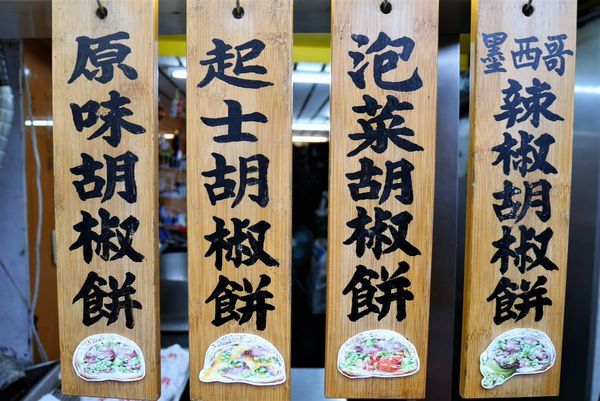 原味胡椒餅
起士胡椒餅
泡菜胡椒餅
墨西哥
辣椒胡椒餅